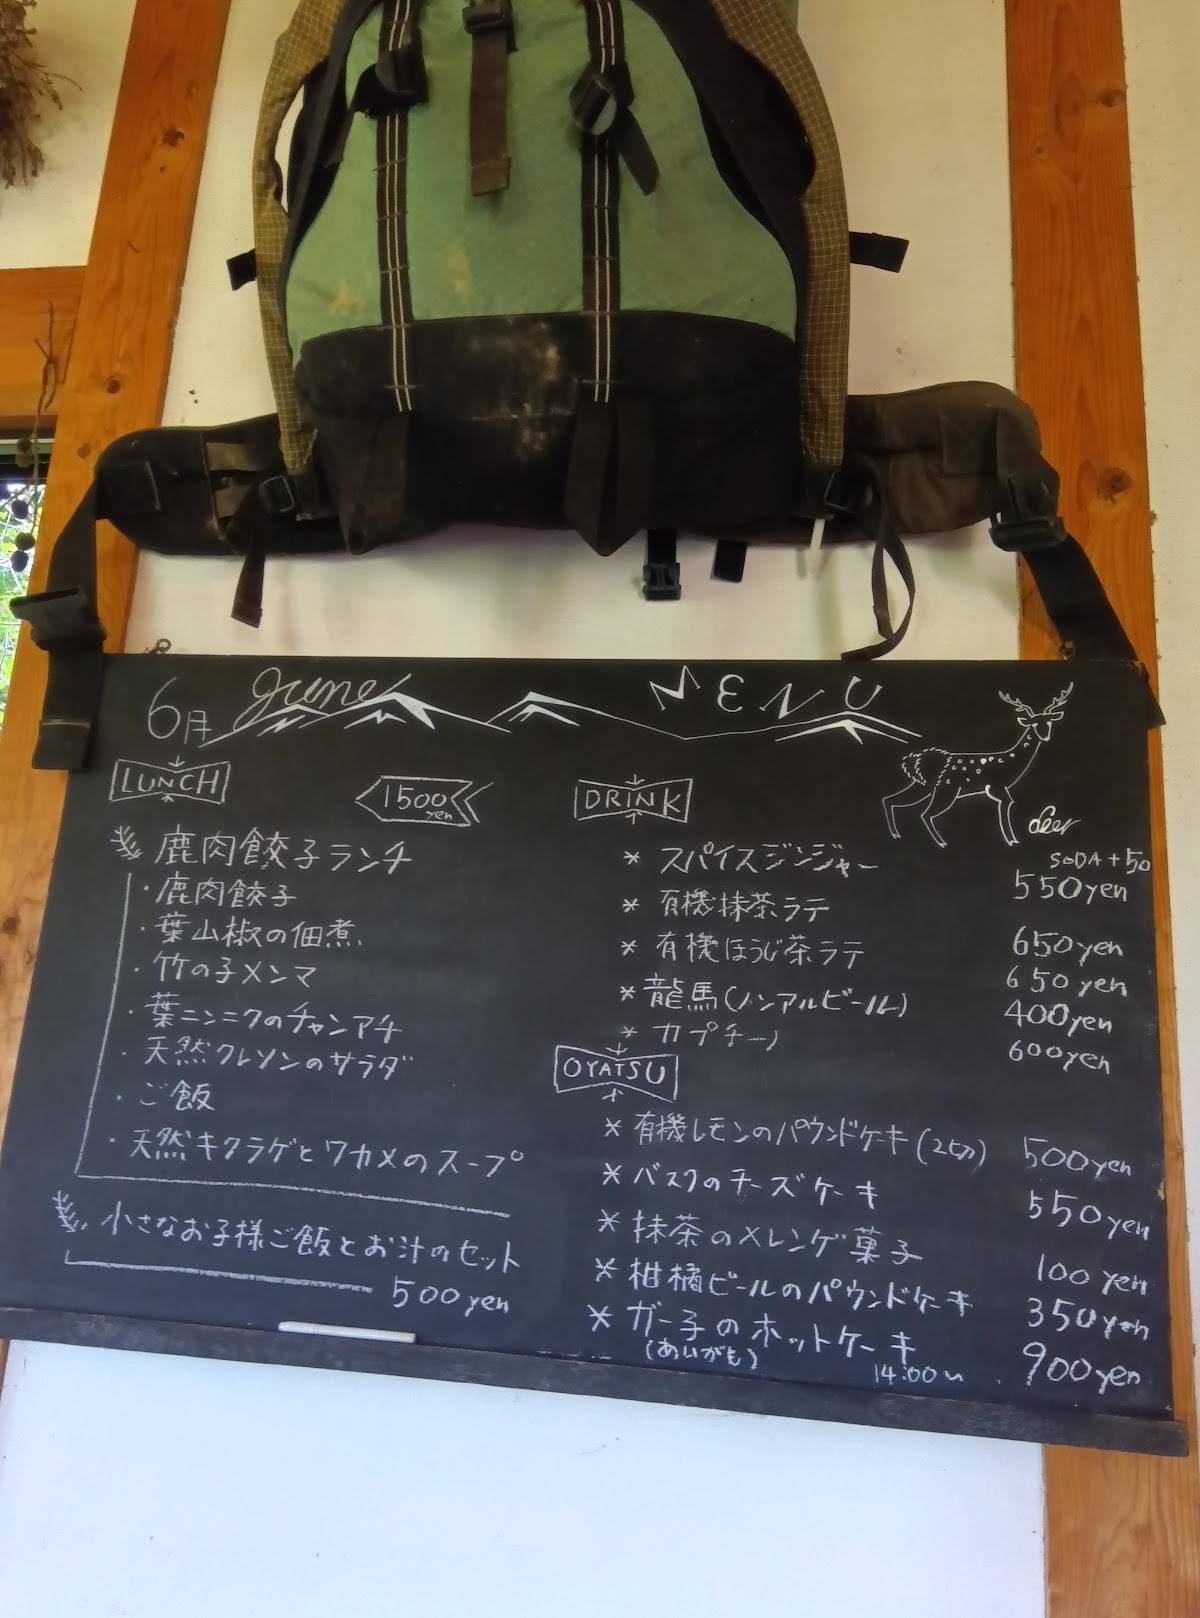 6月 June MENU
LUNCH
1500 yen
鹿肉餃子ランチ
・鹿肉餃子
・葉山椒の佃煮
・竹の子メンマ
・葉ニンニクのチャンプチ
・天然クレソンのサラダ
・ご飯
・天然キクラゲとワカメのスープ
小さなお子様ご飯とお汁のセット
500yen
DRINK
deer
SODA+50
* スパイスジンジャー 550yen
* 有機抹茶ラテ 650yen
* 有機ほうじ茶ラテ 650yen
* 龍馬(ノンアルビール) 400yen
* カプチーノ 600yen
OYATSU
* 有機レモンのパウンドケーキ(2切) 500yen
* バスクのチーズケーキ 550yen
* 抹茶のメレンゲ菓子 100yen
* 柑橘ビールのパウンドケーキ 350yen
* ガー子のホットケーキ 900yen
(あいがも) 14:00〜